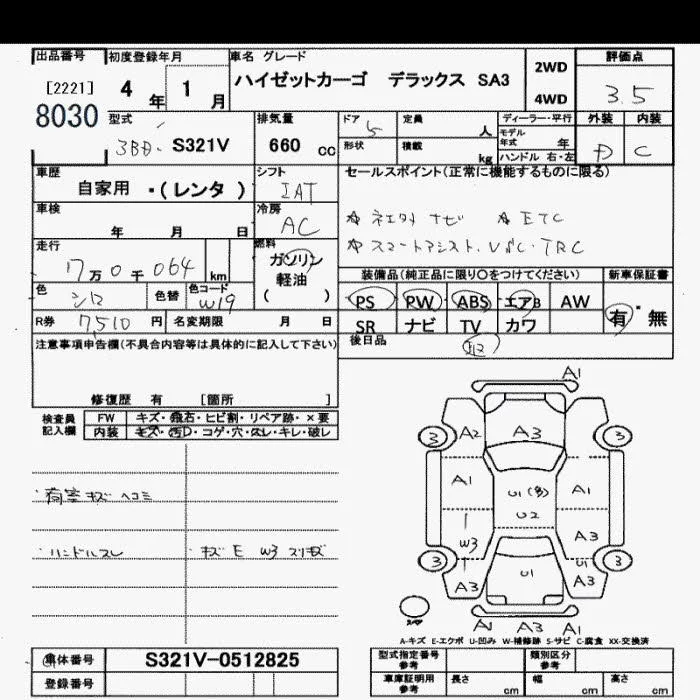 出品番号 初度登録年月 車名 グレード 評価点
[2221] 4 年 1 月 ハイゼットカーゴ デラックス SA3 2WD 3.5
8030 4WD
型式 排気量 ドア 5 定員 人 ディーラー・平行 外装 内装
3BD- S321V 660 cc 形状 積載 kg モデル年式 年 D C
ハンドル 右・左
車歴 シフト セールスポイント(正常に機能するものに限る)
自家用 ・(レンタ ) IAT
車検 年 月 日 冷房 AC ☆ ナビ ☆ ETC
☆ スマートアシスト. VSC・TRC
走行 17万0千064 km 燃料 ガソリン
軽油
( )
装備品(純正品に限り○をつけてください) 新車保証書
色 シロ 色替 色コード W19 PS PW ABS エアB AW 有・無
R券 7,510 円 名変期限 月 日 SR ナビ TV カワ
注意事項申告欄(不具合内容等は具体的に記入して下さい) 後日品
修復歴 有 [箇所 ]
検査員記入欄 FW キズ・飛石・ヒビ割・リペア跡・×要
内装 キズ・汚D・コゲ・穴・スレ・キレ・破レ
・荷室キズ ヘコミ
・ハンドルスレ ・キズ E W3 スリキズ
A1
3 A2 A3 3
A1 U1(多) A1
U2
W3 A3
3 A3 U1 U1 A3 3
スペア A1 A3 A1
A-キズ E-エクボ U-凹み W-補修跡 S-サビ C-腐食 XX-交換済
車体番号 S321V-0512825 型式指定番号 参考 類別区分 参考
登録番号 車庫証明用 参考 長さ cm 幅 cm 高さ cm